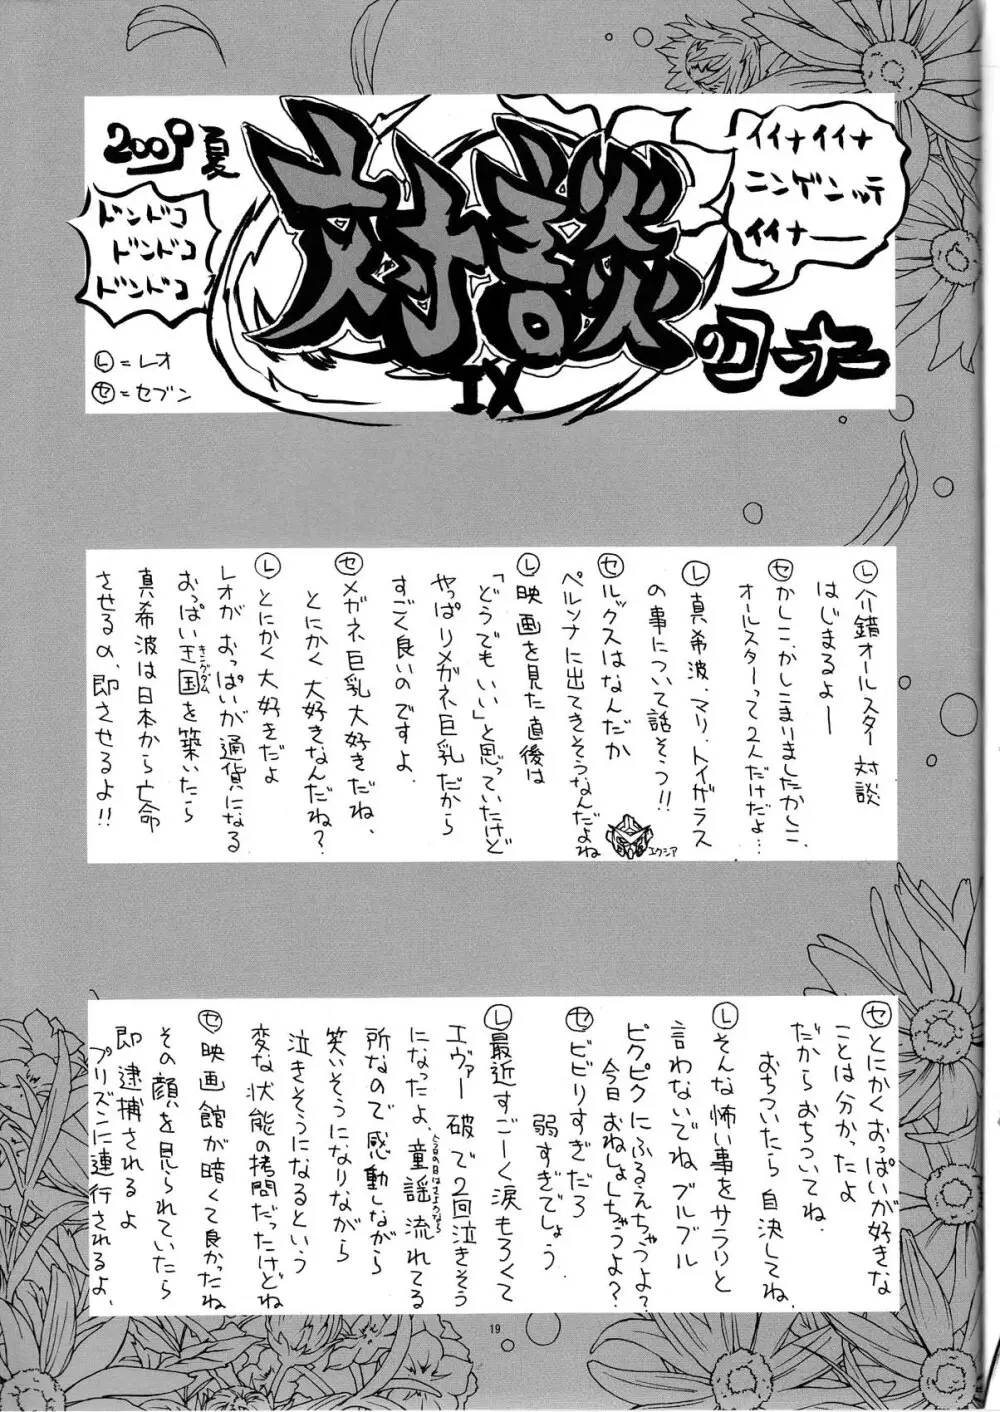 2009夏
対談
IX
のコーナー
イイナイイナ
ニンゲンッテ
イイナ――
ドンドコ
ドンドコ
ドンドコ
Ⓛ=レオ
㋝=セブン
Ⓛ介錯オールスター対談
はじまるよー
㋝かしこ、かしこまりましたかしこ、
オールスターって2人だけだよ…
Ⓛ真希波、マリ、トイザラス
の事について話そう!!
㋝ルックスはなんだか
ペルソナに出てきそうなんだよね
エクシア
Ⓛ映画を見た直後は
「どうでもいい」と思っていたけど
やっぱりメガネ巨乳だから
すごく良いのですよ、
㋝メガネ巨乳大好きだね、
とにかく大好きなんだね?
Ⓛとにかく大好きだよ
レオがおっぱいが通貨になる
おっぱい王国を築いたら
キングダム
真希波は日本から亡命
させるの、即させるよ!!
㋝とにかくおっぱいが好きな
ことは分かったよ
だからおちついてね、
おちついたら自決してね、
Ⓛそんな怖い事をサラリと
言わないでね、ブルブル
ピクピクにふるえちゃうよ?
今日おねしょしちゃうよ?
㋝ビビりすぎだろ
弱すぎでしょう
Ⓛ最近すごーく涙もろくて
エヴァー破で2回泣きそう
になったよ、童謡流れてる
今日の日はさようなら
所なので感動しながら
笑いそうになりながら
泣きそうになるという
変な状態の拷問だったけどね
㋝映画館が暗くて良かったね
その顔を見られていたら
即逮捕されるよ
プリズンに連行されるよ、
19